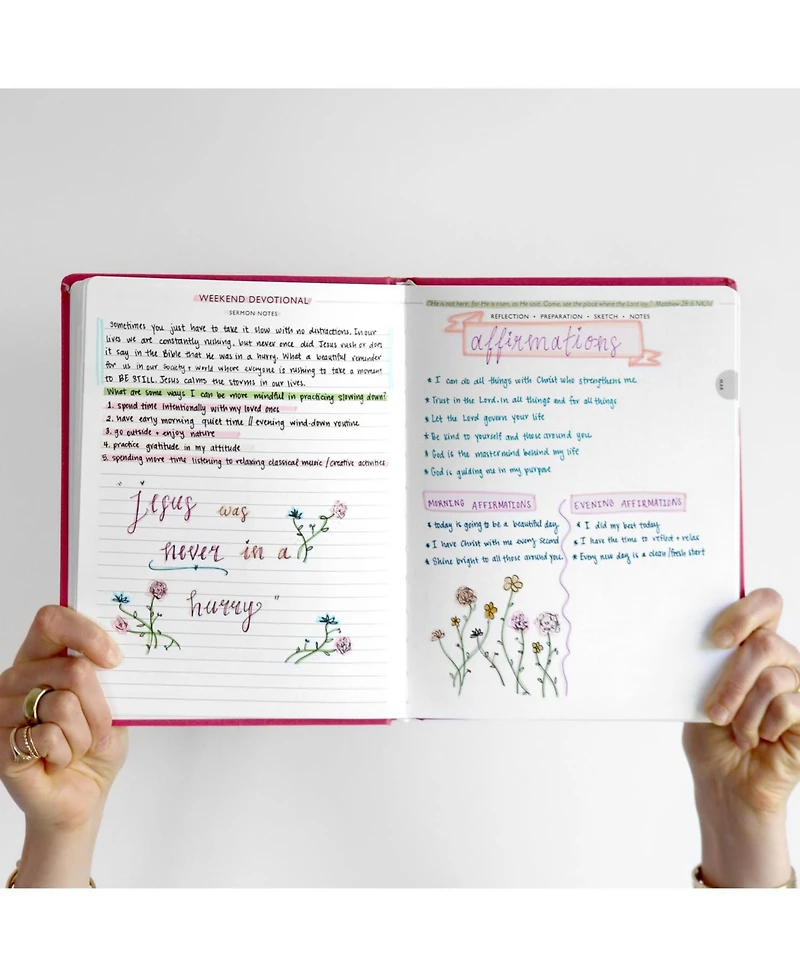 WEEKEND DEVOTIONAL
SERMON NOTES
Sometimes you just have to take it slow with no distractions. In our
lives we are constantly rushing, but never once did Jesus rush or does
it say in the Bible that He was in a hurry. What a beautiful reminder
for us in our society + world where everyone is rushing to take a moment
to BE STILL. Jesus calms the storms in our lives.
What are some ways I can be more mindful in practicing slowing down?
1. spend time intentionally with my loved ones
2. have early morning quiet time // evening wind-down routine
3. go outside + enjoy nature
4. practice gratitude in my attitude
5. spending more time listening to relaxing classical music / creative activities
"Jesus was
never in a
hurry"
"He is not here; for He is risen, as He said. Come, see the place where the Lord lay." Matthew 28:6 NKJV
REFLECTION • PREPARATION • SKETCH • NOTES
affirmations
* I can do all things with Christ who strengthens me
* Trust in the Lord in all things and for all things
* Let the Lord govern your life
* Be kind to yourself and those around you
* God is the mastermind behind my life
* God is guiding me in my purpose
MORNING AFFIRMATIONS
* today is going to be a beautiful day
* I have Christ with me every second
* Shine bright to all those around you
EVENING AFFIRMATIONS
* I did my best today
* I have the time to reflect + relax
* Every new day is a clean/fresh start
MAR